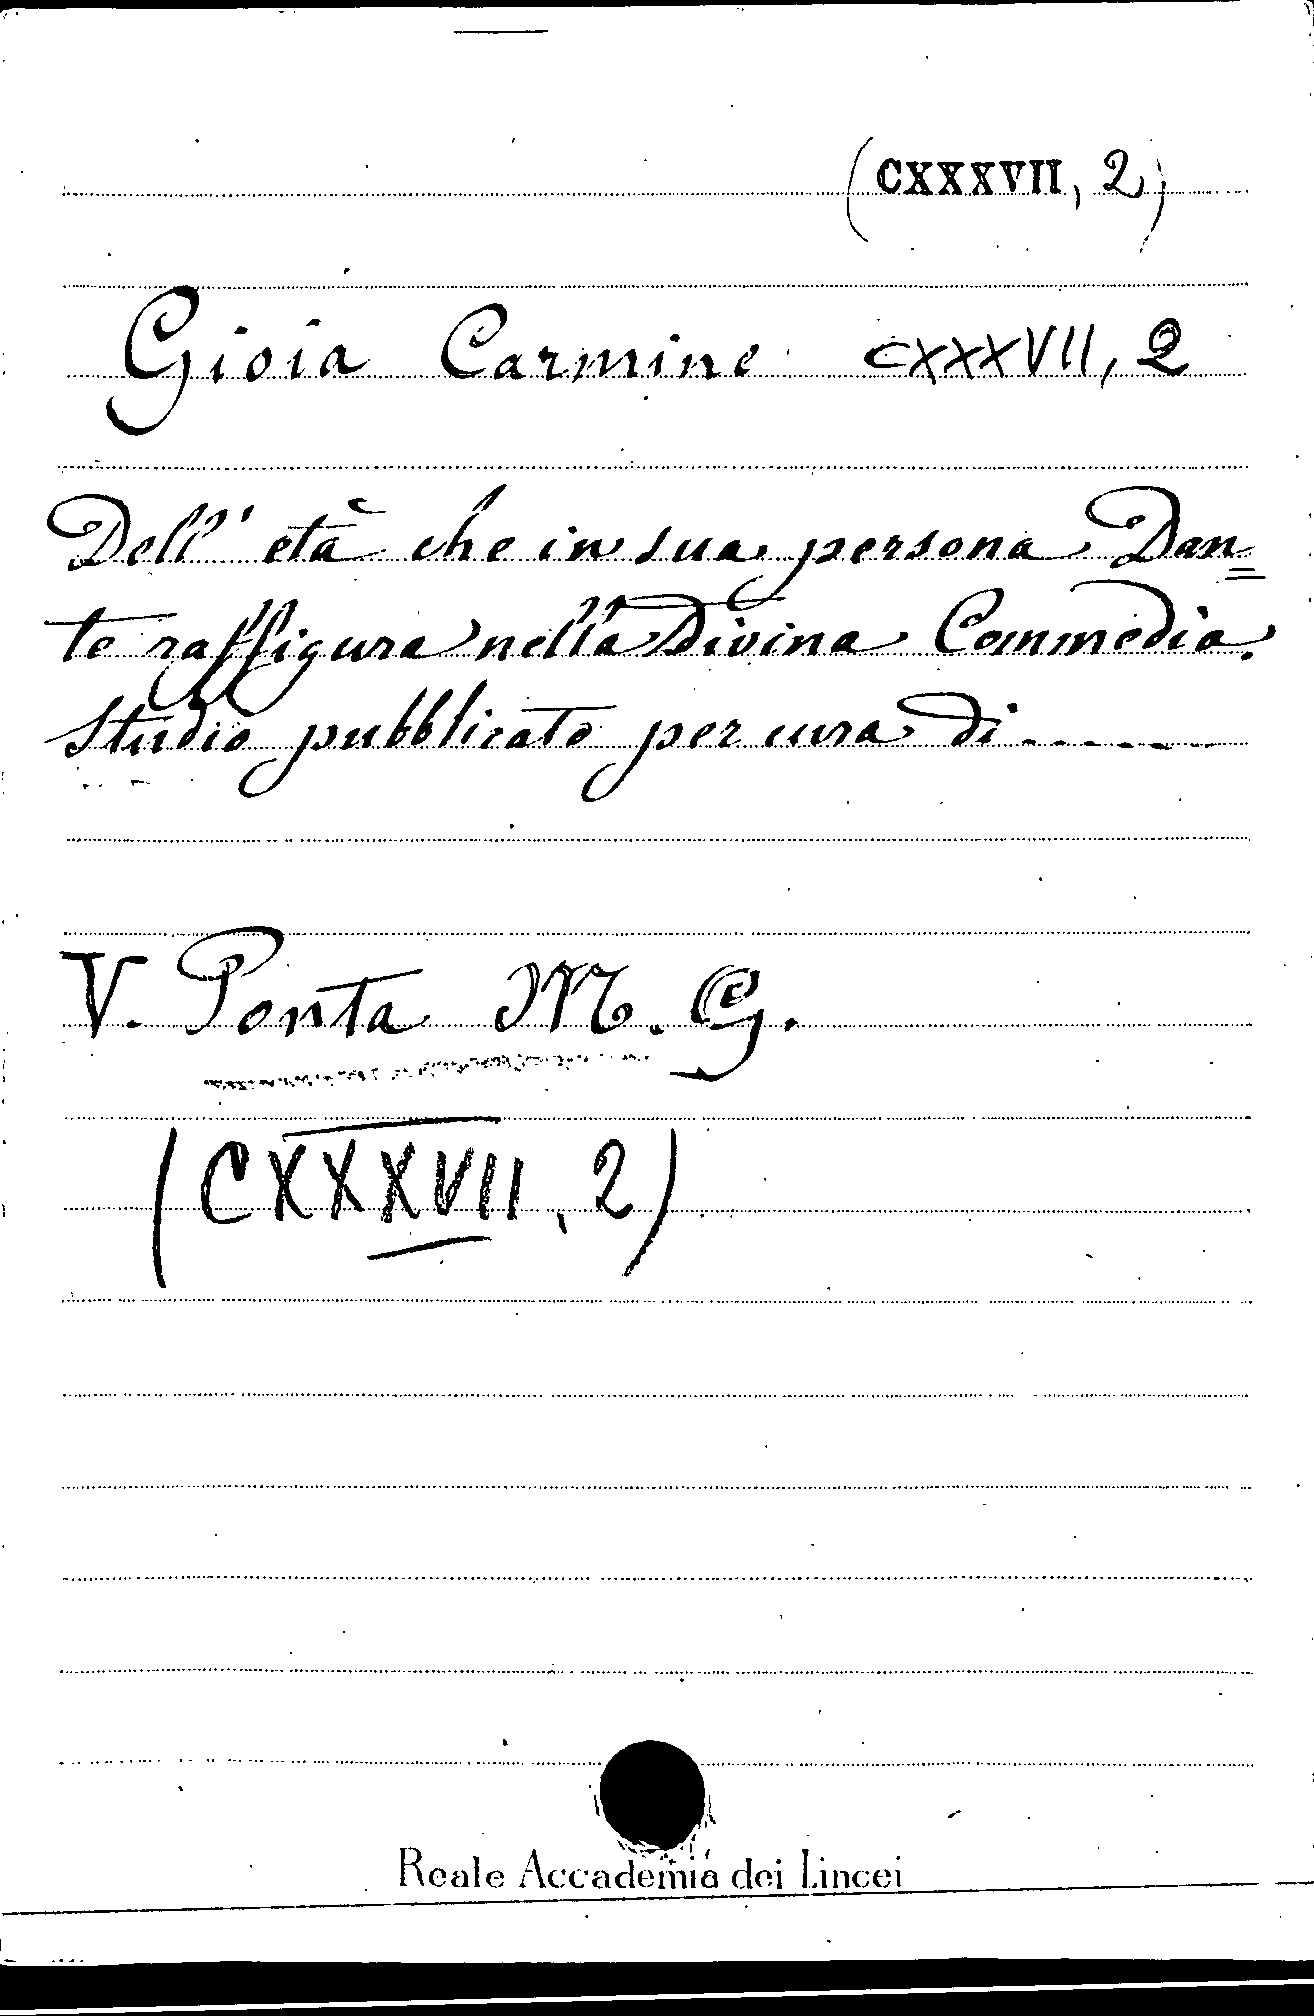 (CXXXVII, 2)
Gioia Carmine CXXXVII, 2
Dell' età che in sua persona Dan=
te raffigura nella Divina Commedia.
Studio pubblicato per cura di......
V. Ponta M. G.
(CXXXVII, 2)
Reale Accademia dei Lincei